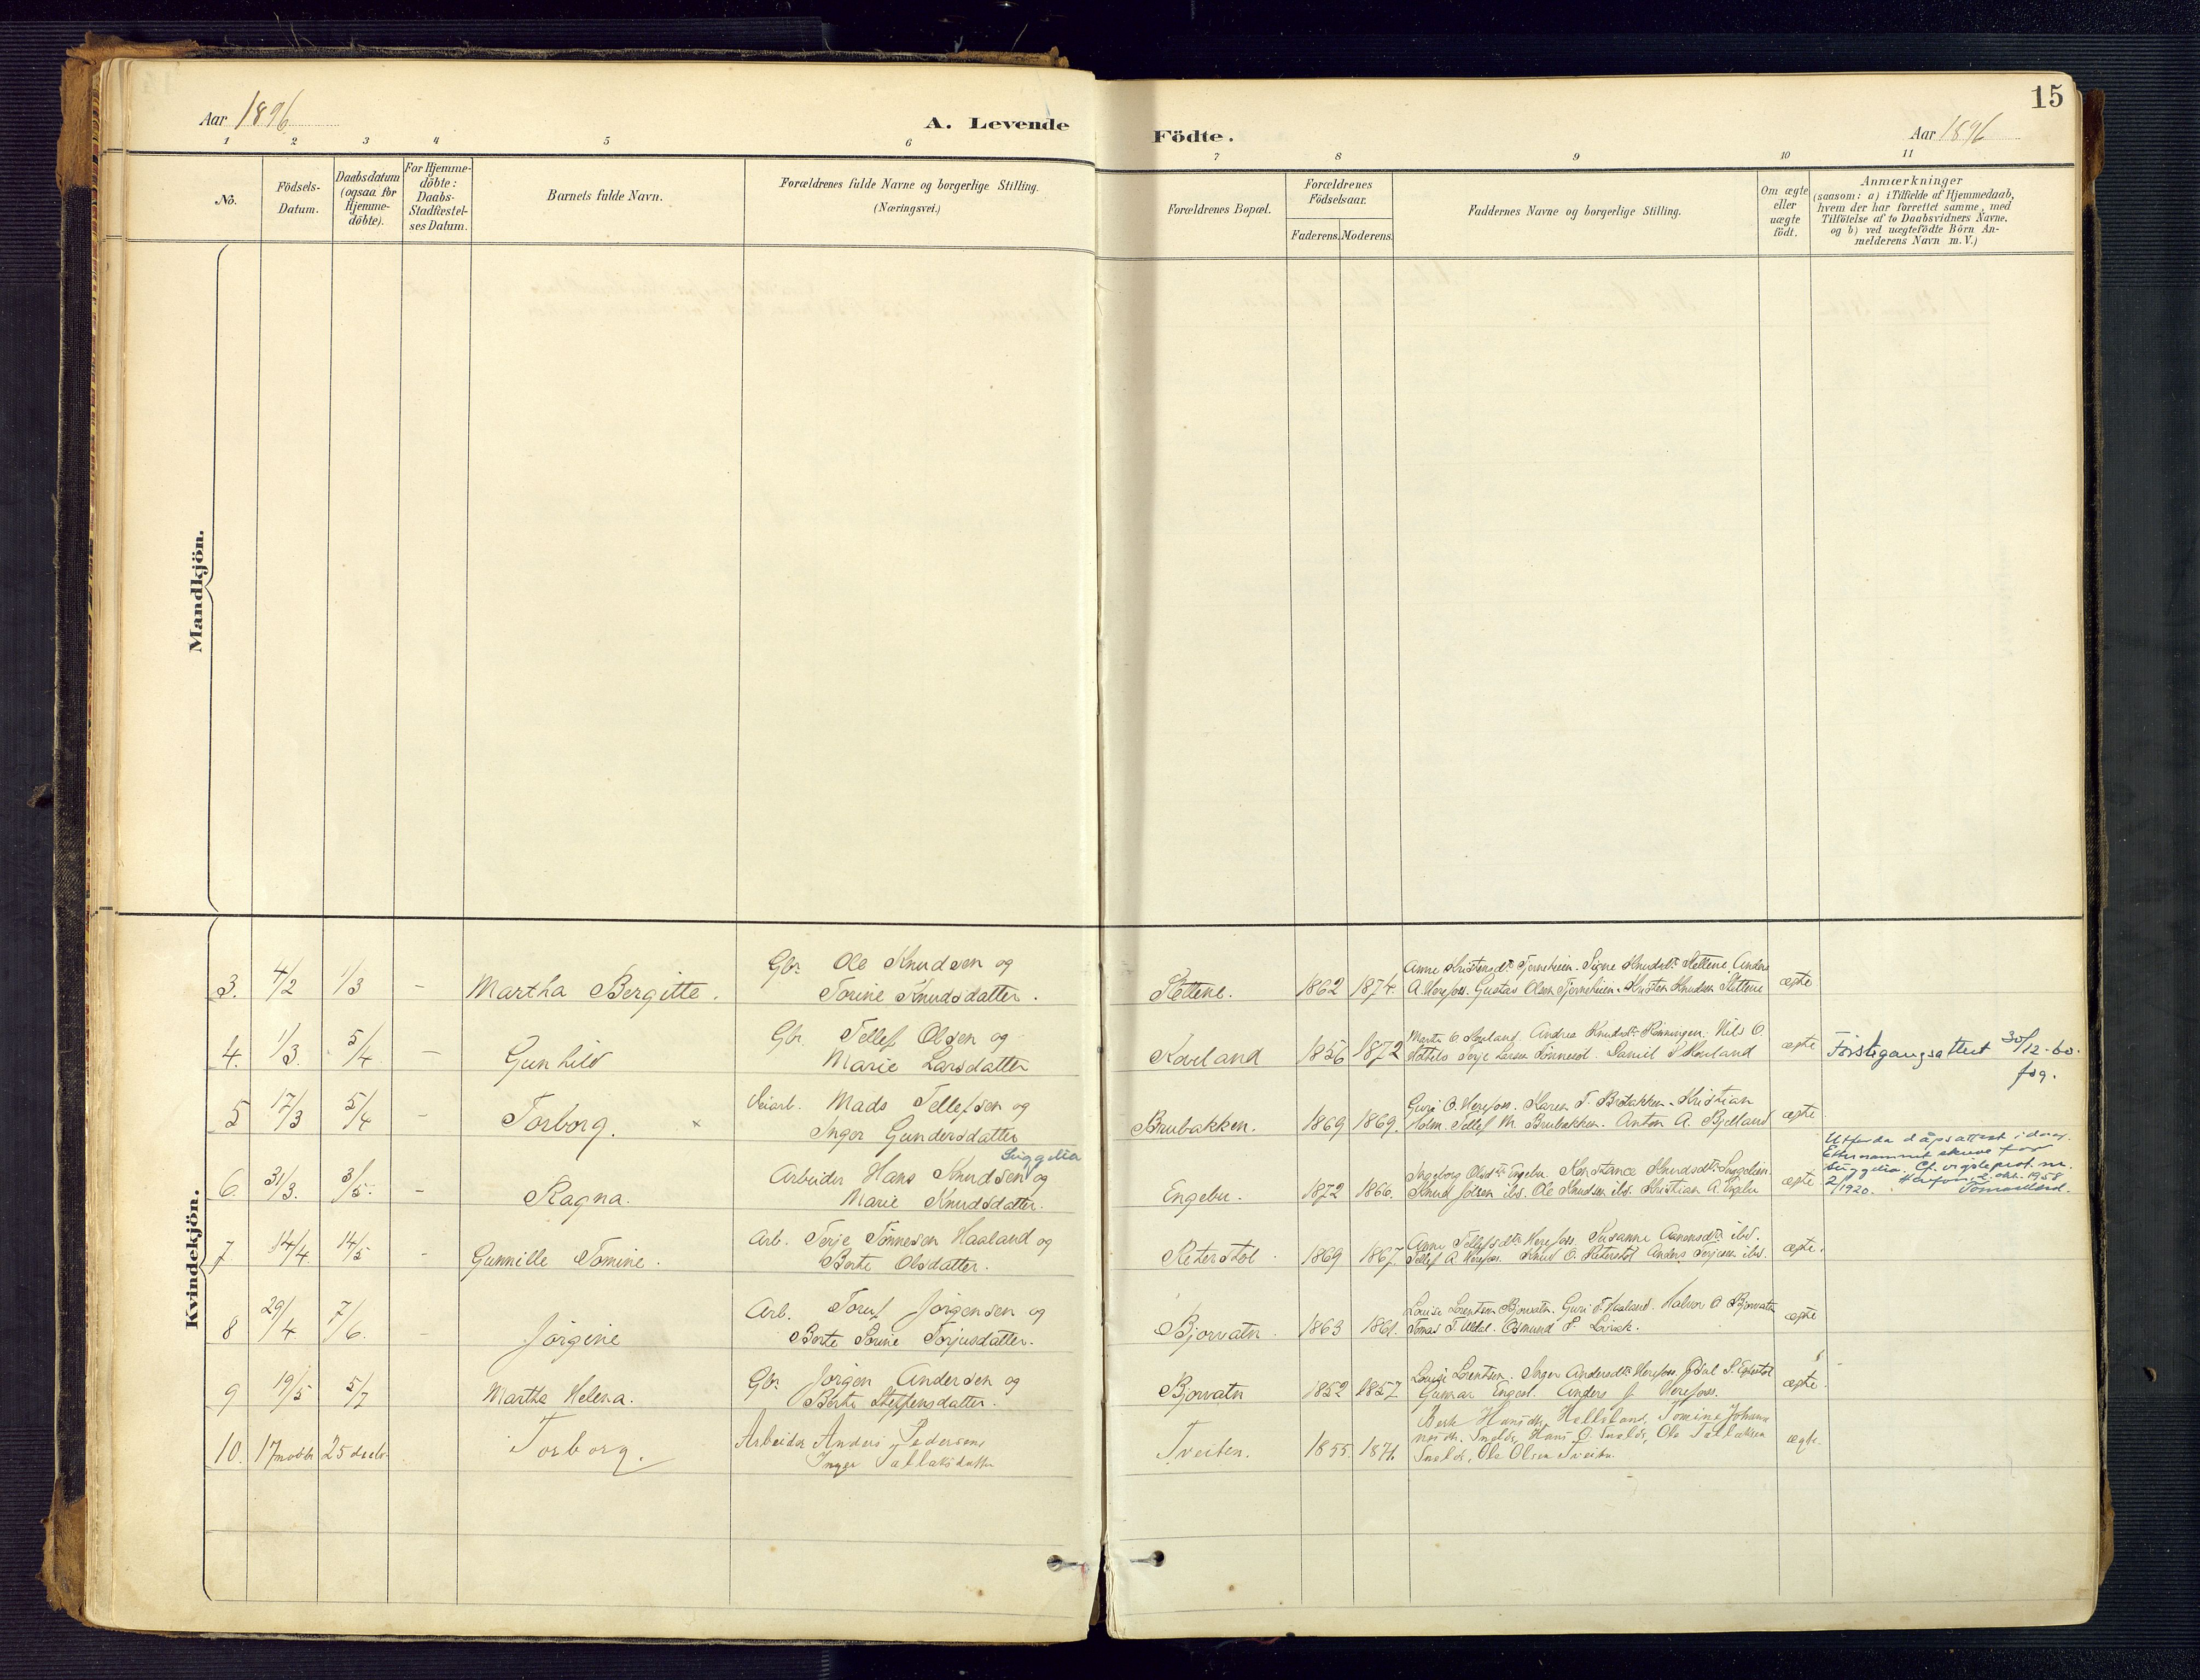 15
Aar 1896
A. Levende Födte.
Aar 1896
1 2 3 4 5 6 7 8 9 10 11
No.
Födsels-
Datum.
Daabsdatum
(ogsaa for
Hjemme-
döbte).
For Hjemme-
döbte:
Daabs-
Stadfæstel-
ses Datum.
Barnets fulde Navn.
Forældrenes fulde Navne og borgerlige Stilling.
(Næringsvei.)
Forældrenes Bopæl.
Forældrenes
Födselsaar.
Faderens. Moderens.
Faddernes Navne og borgerlige Stilling.
Om ægte
eller
uægte
födt.
Anmærkninger
(saasom: a) i Tilfælde af Hjemmedaab,
hvem der har forrettet samme, med
Tilföielse af to Daabsvidners Navne.
og b) ved uægtefödte Börn An-
melderens Navn m. V.)
Mandkjön.
Kvindekjön.
3. 4/2 1/3 - Martha Bergitte.
Gbr. Ole Knudsen og
Torine Knudsdatter.
Slettene. 1862 1874.
Anne Kristensdt. Tjerneheien. Signe Knudsdt. Slettene. Anders
A. Herefoss. Gustav Olsen Tjerneheien. Kristen Knudsen Slettene
ægte
4. 1/3. 5/4 - Gunhild
Gbr. Tellef Olsen og
Marie Larsdatter
Kovland 1856 1872
Andrea Knudsdt. Nils O
Terje Larsen Daniel
ægte
Förstegangsattest 30/12-60.
5 17/3 5/4 - Torborg. x
Veiarb. Mads Tellefsen og
Inger Gundersdatter
Brubakken. 1869 1869.
Guri O. Herefoss. Karen T. Brubakken. Kristian
Holm. Tellef M. Brubakken. Anton A. Bjelland
ægte
6. 31/3. 3/5. - Ragna.
Suggelia
Arbeider Hans Knudsen og
Marie Knudsdatter.
Engebu. 1872 1866.
Ingeborg Olsdtr. Engebu. Konstance Knudsdt. Suggelien.
Knud Jolsen ibd. Ole Knudsen ibd. Kristian A. Engebu
ægte
Utferda dåpsattest idag.
Etternamnet skrives for
Suggelia. Cf. vigsleprot. nr.
2/1920. 2. okt. 1958
7 14/4. 14/5 - Gunnille Tomine.
Arb. Terje Tönnesen Haaland og
Berte Olsdatter.
Reterstöl. 1869 1867.
Anne Tellefsdt. Herefoss. Susanne Aanensdt. ibd.
Tellef A. Herefoss. Knud O. Reterstöl Anders Terjesen ibd.
ægte.
8 29/4 7/6. - Jörgine
Arb. Jörgensen og
Berte Torine Torjusdatter.
Bjorvatn. 1863 1861.
Louise Lorentsen Bjorvatn. Guri T. Haaland. Halvor O Bjorvatn
Tomas T. Uldal. Osmund
ægte
9 19/5 5/7 Martha Helena.
Gbr. Jörgen Andersen og
Berte Steffensdatter.
Bjorvatn 1852 1857
Louise Lorentsen. Inger Andersdt. Herefoss.
Gunnar Anders J Herefoss.
ægte.
10. 17 novbr 25 decbr Torborg.
Arbeider Anders Pedersens
Inger Tallaksdatter
Tveiten. 1855. 1871.
Berte Hansdtr. Tomine Johann
Hans O. Ole Tallaksen
Ole Olsen Tveiten.
ægte.